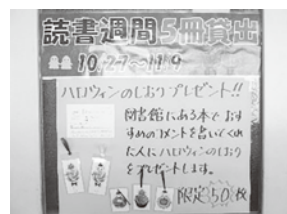 読書週間5冊貸出
10/27~11/9
ハロウィンのしおりプレゼント!!
図書館にある本でおす
すめのコメントを書いてくれ
た人にハロウィンのしおり
をプレゼントします。
限定50枚